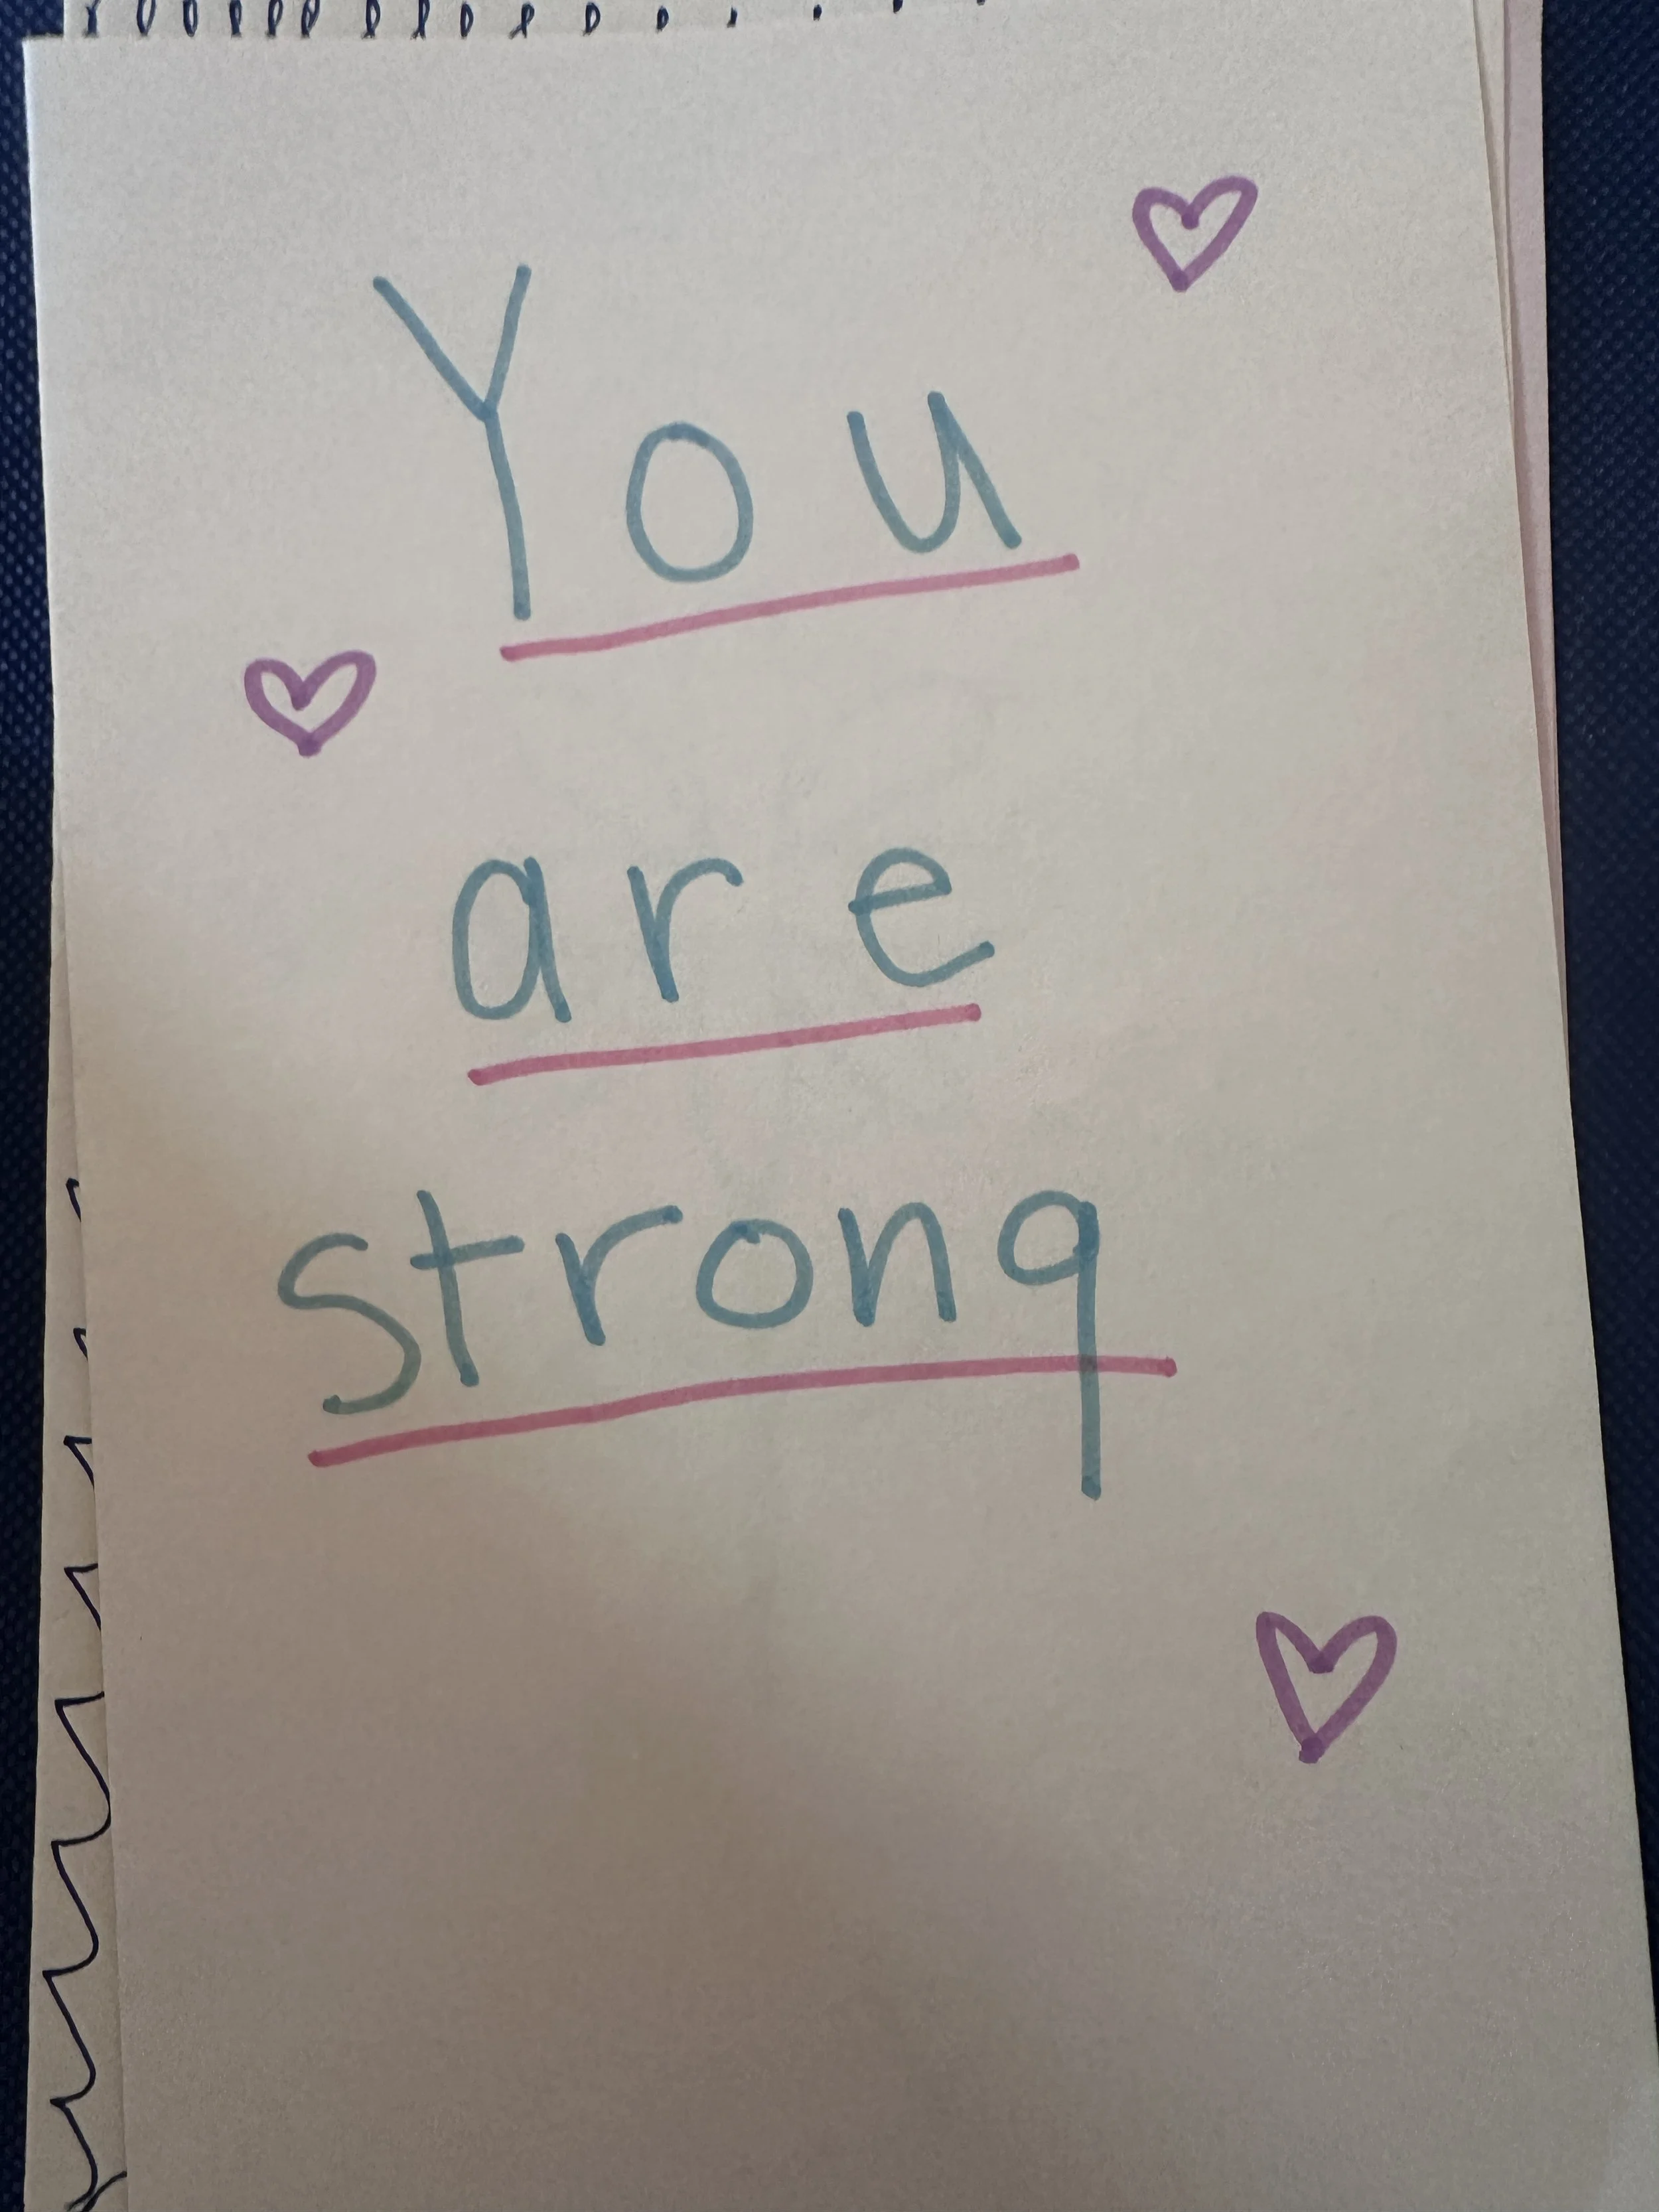 You
are
strong